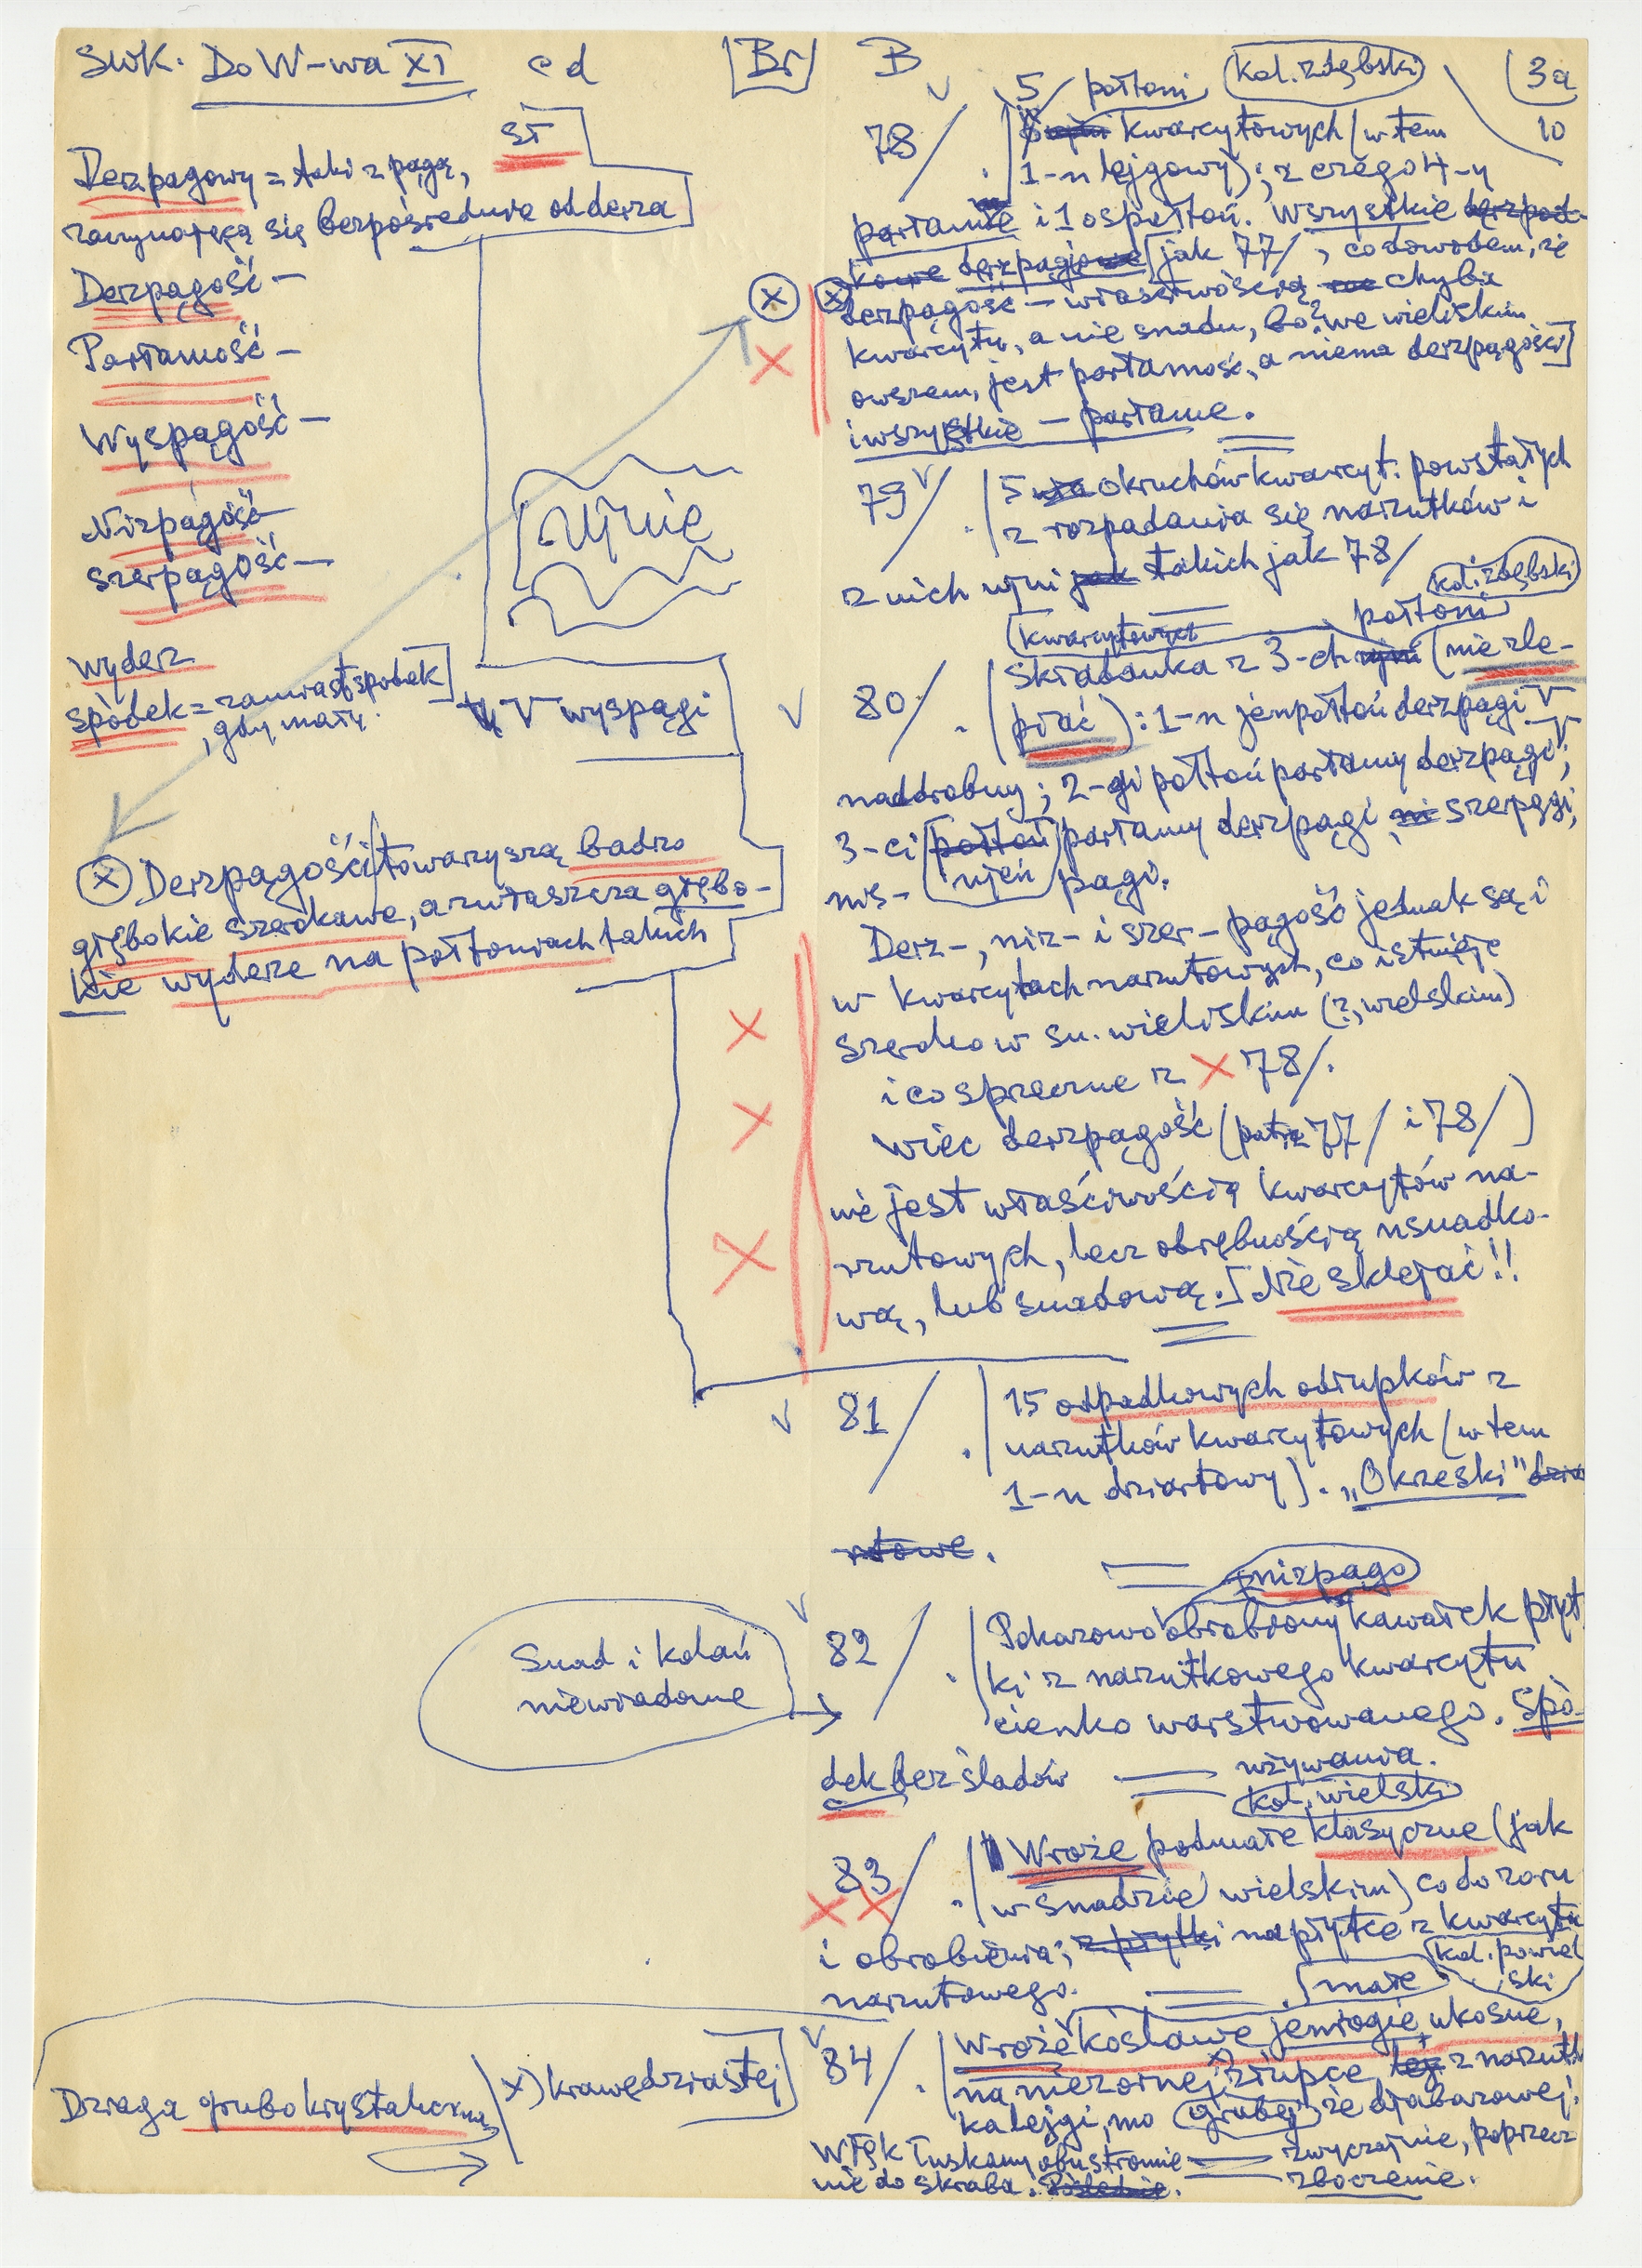 SWK. Do W-wa XI c d [Br] B 3a
10
sł
Derzpągowy = taki z pągą,
zaczynającą się bezpośrednio od derza
Derzpągość —
Partamość —
Wyspągość —
Nizpągość —
Szerpągość —
Wyderz
spódek = zamiast spodek
, gdy mały.
ujnie
V wyspągi
(x) Derzpągości towarzyszą badzo
głębokie szerokawe, a zwłaszcza głębo-
kie wyderze na połtoniach takich
5 połtoni kol. zdębski
78/ kwarcytowych (w tem
1-n lejgowy); z czego 4-y
partamie i 1 ospołtoń. Wszystkie
jak 77/, co dowodem, że
(x) derzpągość — właściwością chyba
kwarcytu, a nie snadu, bo? we wieliskim
owszem, jest partamość, a niema derzpągości]
i wszystkie — partame.
79/ 5 okruchów kwarcyt. powstałych
z rozpadania się narzutków i
z nich ujni takich jak 78/
kol. zdębski
kwarcytowych połtoni
80/ Składanka z 3-ch (nie zle-
piać): 1-n jenpołtoń derzpągi V
naddrobny; 2-gi połtoń partamy derzpągi V;
3-ci ujeń partamy derzpągi szerpągi;
niż- pągi.
Derz-, niz- i szer-pągość jednak są i
w kwarcytach narzutowych, co istnieje
szeroko w sn. wieliskim (?, wielskim)
i co sprzeczne z × 78/.
Więc derzpągość (patrz 77/ i 78/)
nie jest właściwością kwarcytów na-
rzutowych, lecz obrębnością nsnadko-
wą, lub snadową.] Nie sklejać!!
81/ 15 odpadkowych odłupków z
narzutków kwarcytowych (w tem
1-n dziartowy). „Okrzeski"
nizpągo
82/ Pokazowo obrobiony kawałek płyt
ki z narzutkowego kwarcytu
cienko warstwowanego. Spó-
dek bez śladów używania.
Snad i kolań
niewiadome
kol. wielski
83/ Wroże podmałe klasyczne (jak
w snadzie wielskim) co do zoru
i obrobienia; na płytce z kwarcytu
narzutowego.
kol. powiel
ski
małe
84/ Wroże koślawe jenrogie ukośne,
na niezornej złupce, z narzut
ka lejgi, mo grubej ze diabazowej.
Wlęk łuskany obustronnie zwyczajnie, poprzecz
nie do skraba. zboczenie.
Dziaga grubokrystaliczna
x) krawędziastej]